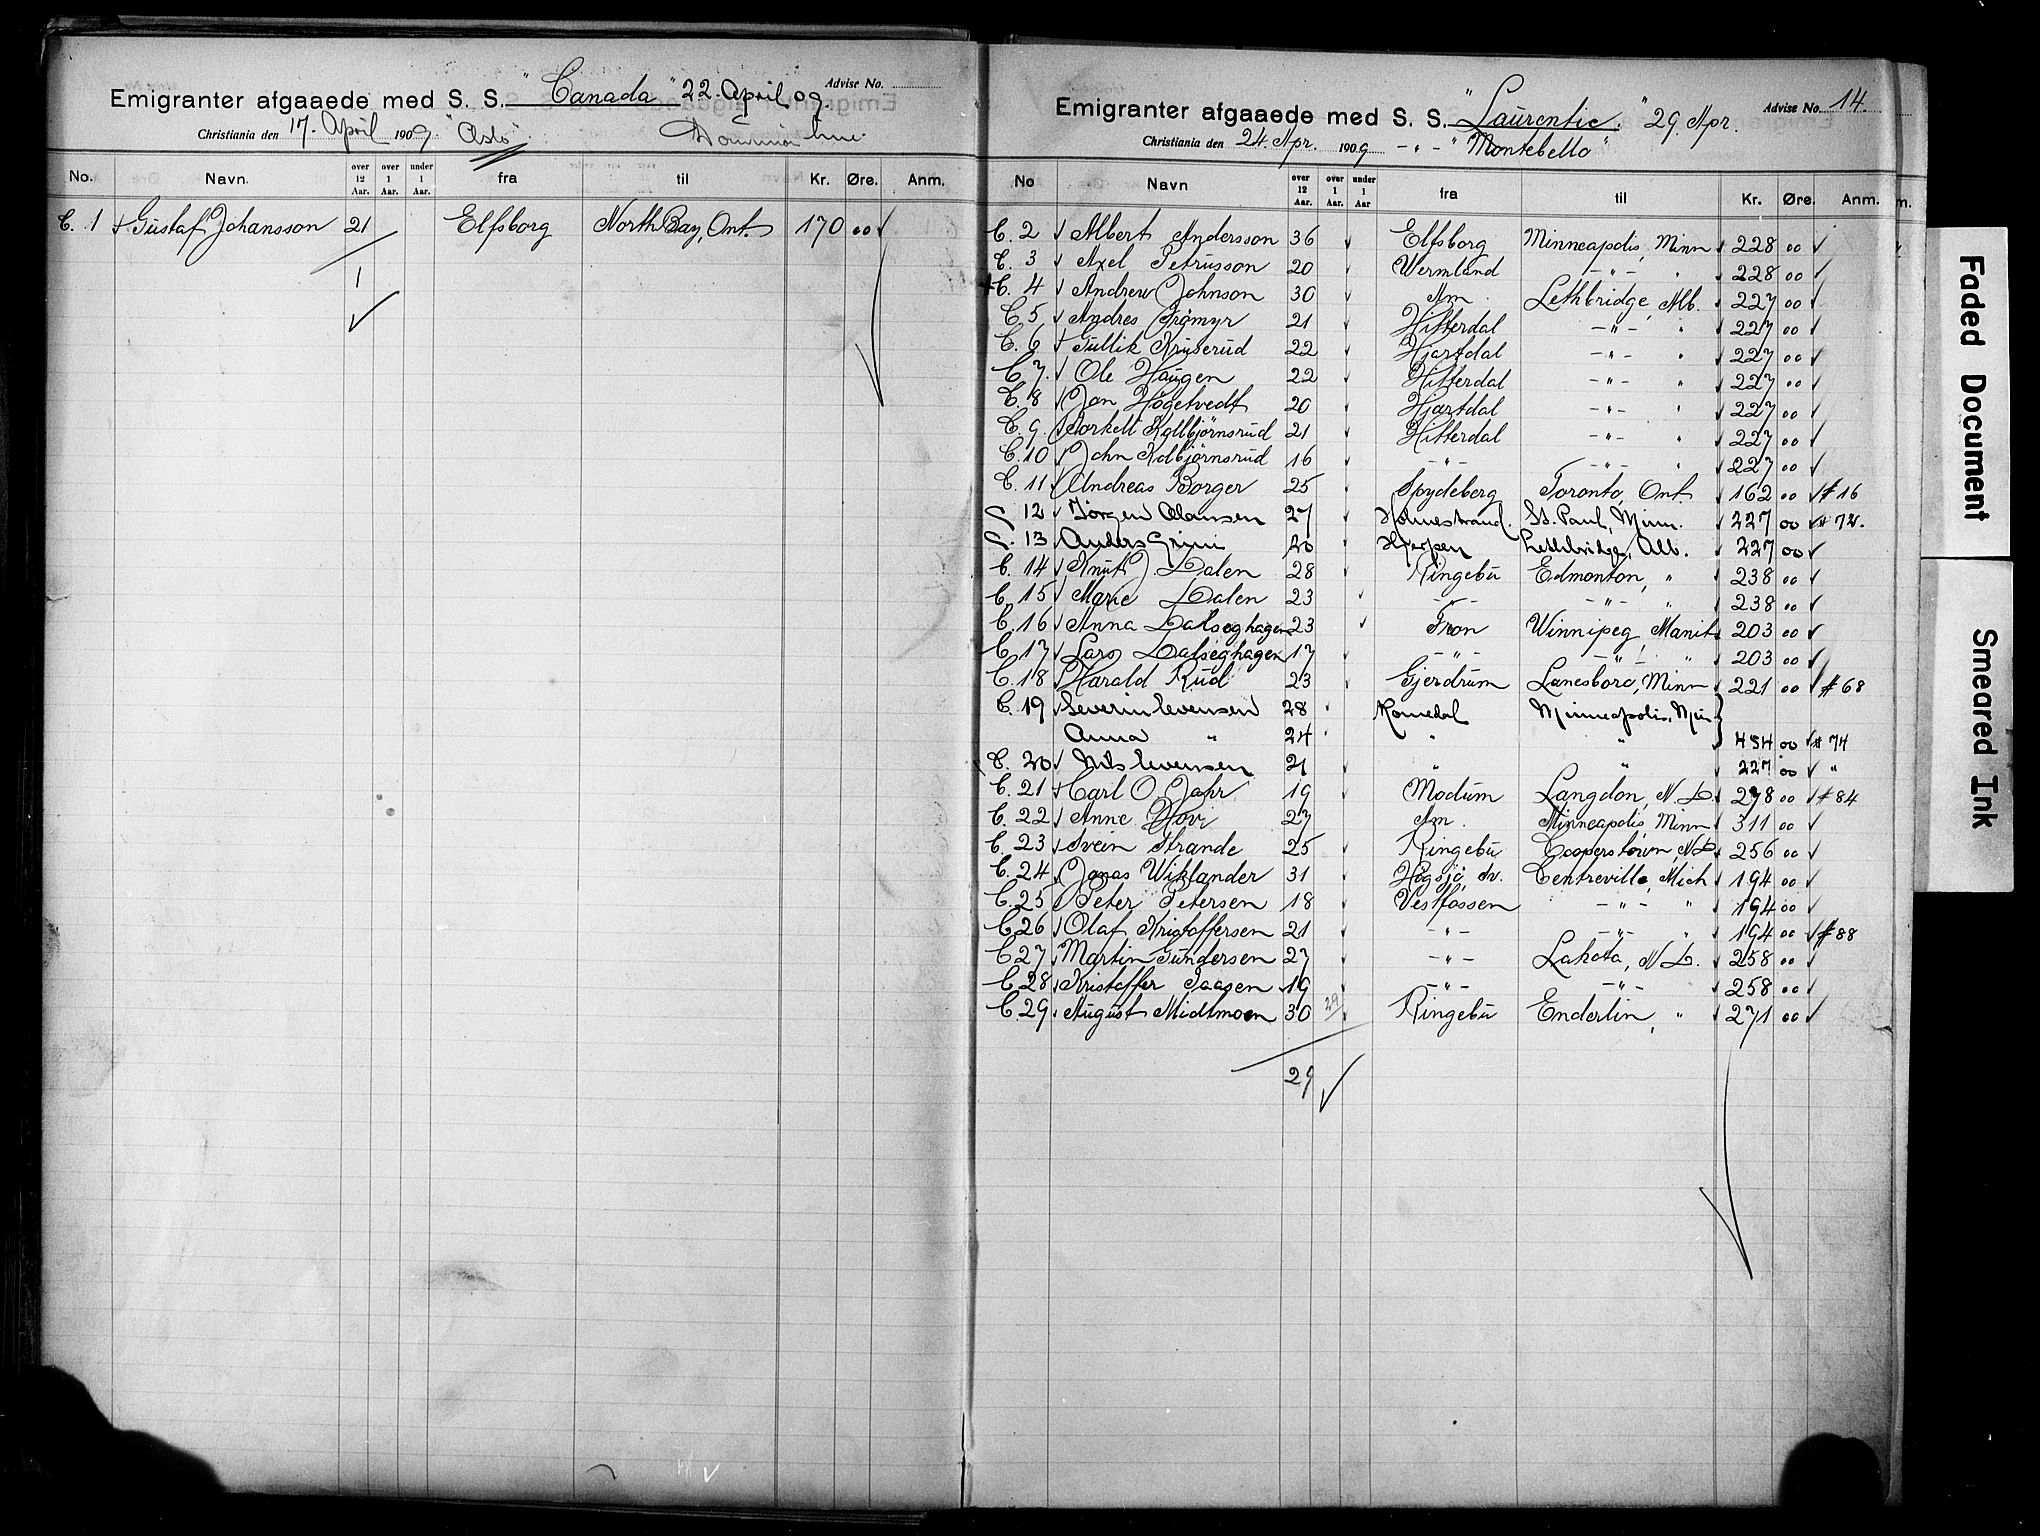 Emigranter afgaaede med S. S. "Canada" 22. April 09. Advise No.
Christiania den 17. April 1909 "Oslo" Dominion line.
No. Navn. over 12 Aar. over 1 Aar. under 1 Aar. fra til Kr. Øre. Anm.
C. 1 Gustaf Johansson 21 Elfsborg North Bay, Ont. 170 00
1
Emigranter afgaaede med S. S. "Laurentic" 29. Apr. Advise No. 14.
Christiania den 24. Apr. 1909 - " - "Montebello"
No Navn over 12 Aar. over 1 Aar. under 1 Aar fra til Kr. Øre. Anm.
C. 2 Albert Andersson 36 Elfsborg Minneapolis, Minn 228 00
C. 3 Axel Petrusson 20 Wermland - " - " 228 00
C. 4 Andrew Johnson 30 Am. Lethbridge, Alb. 227 00
C. 5 Andres Trømyr 21 Hitterdal - " - " 227 00
C. 6 Gullik Kruserud 22 Hjartdal - " - " 227 00
C. 7. Ole Haugen 22 Hitterdal - " - " 227 00
C. 8 Jon Høgetvedt 20 Hjartdal - " - " 227 00
C. 9. Torkell Kolbjørnsrud 21 Hitterdal - " - " 227 00
C. 10 John Kolbjørnsrud 16 - " - - " - " 227 00
C. 11 Andreas Borger 25 Spydeberg Toronto, Ont. 162 00 # 16
C. 12 Jörgen Olaussen 27 Holmestrand. St. Paul, Minn. 227 00 # 72.
C. 13 Anders Grini 20 Lethbridge, Alb. 227 00
C. 14 Knut J. Dalen 28 Ringebu Edmonton, " 238 00
C. 15 Marie Dalen 23 - " - - " - " 238 00
C. 16 Anna Dalseghagen 23 Fron Winnipeg Manit 203 00
C. 17 Lars Dalseghagen 17 - " - - " - " 203 00
C. 18 Harald Rud 23 Gjerdrum Lanesboro, Minn 221 00 # 68
C. 19 Severin Evensen 28 Romedal Minneapolis, Min
Anna " 24 " " 454 00 # 74
C. 20 Nils Evensen 21 " " 227 00 "
C. 21 Carl O. Jahr 19 Modum Langdon, N. D. 278 00 # 84
C. 22 Anne 27 Am. Minneapolis, Minn 311 00
C. 23 Svein Strande 25 Ringebu Cooperstown, N.D. 256 00
C. 24 Jonas Wiklander 31 Högsjö, Sv. Centreville, Mich 194 00
C. 25 Peter Petersen 18 Vestfossen - " - " 194 00
C. 26 Olaf Kristoffersen 21 - " - - " - " 194 00 # 88
C. 27 Martin Gundersen 27 - " - Lakota, N. D. 258 00
C. 28 Kristoffer Paasen 19 - " - - " - 258 00
C. 29 August Midtmoen 30 29 Ringebu Enderlin, " 271 00
29
Faded Document
Smeared Ink